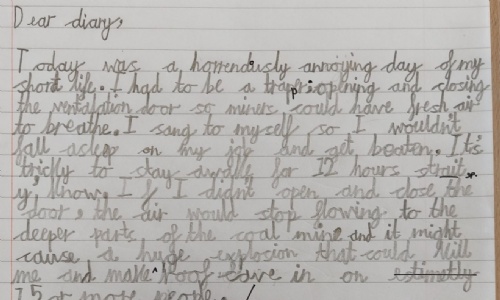 Dear diary,
Today was a horrendously annoying day of my
short life. I had to be a trapper opening and closing
the ventalation door so miners could have fresh air
to breathe. I sang to myself so I wouldn't
fall asleep on my job and get beaten. It's
trickly to stay awake for 12 hours strait
y'know. If I didn't open and close the
door, the air would stop flowing to the
deeper parts of the coal mine and it might
cause a huge explosion that could kill
me and make roof cave in on
75 or more people.